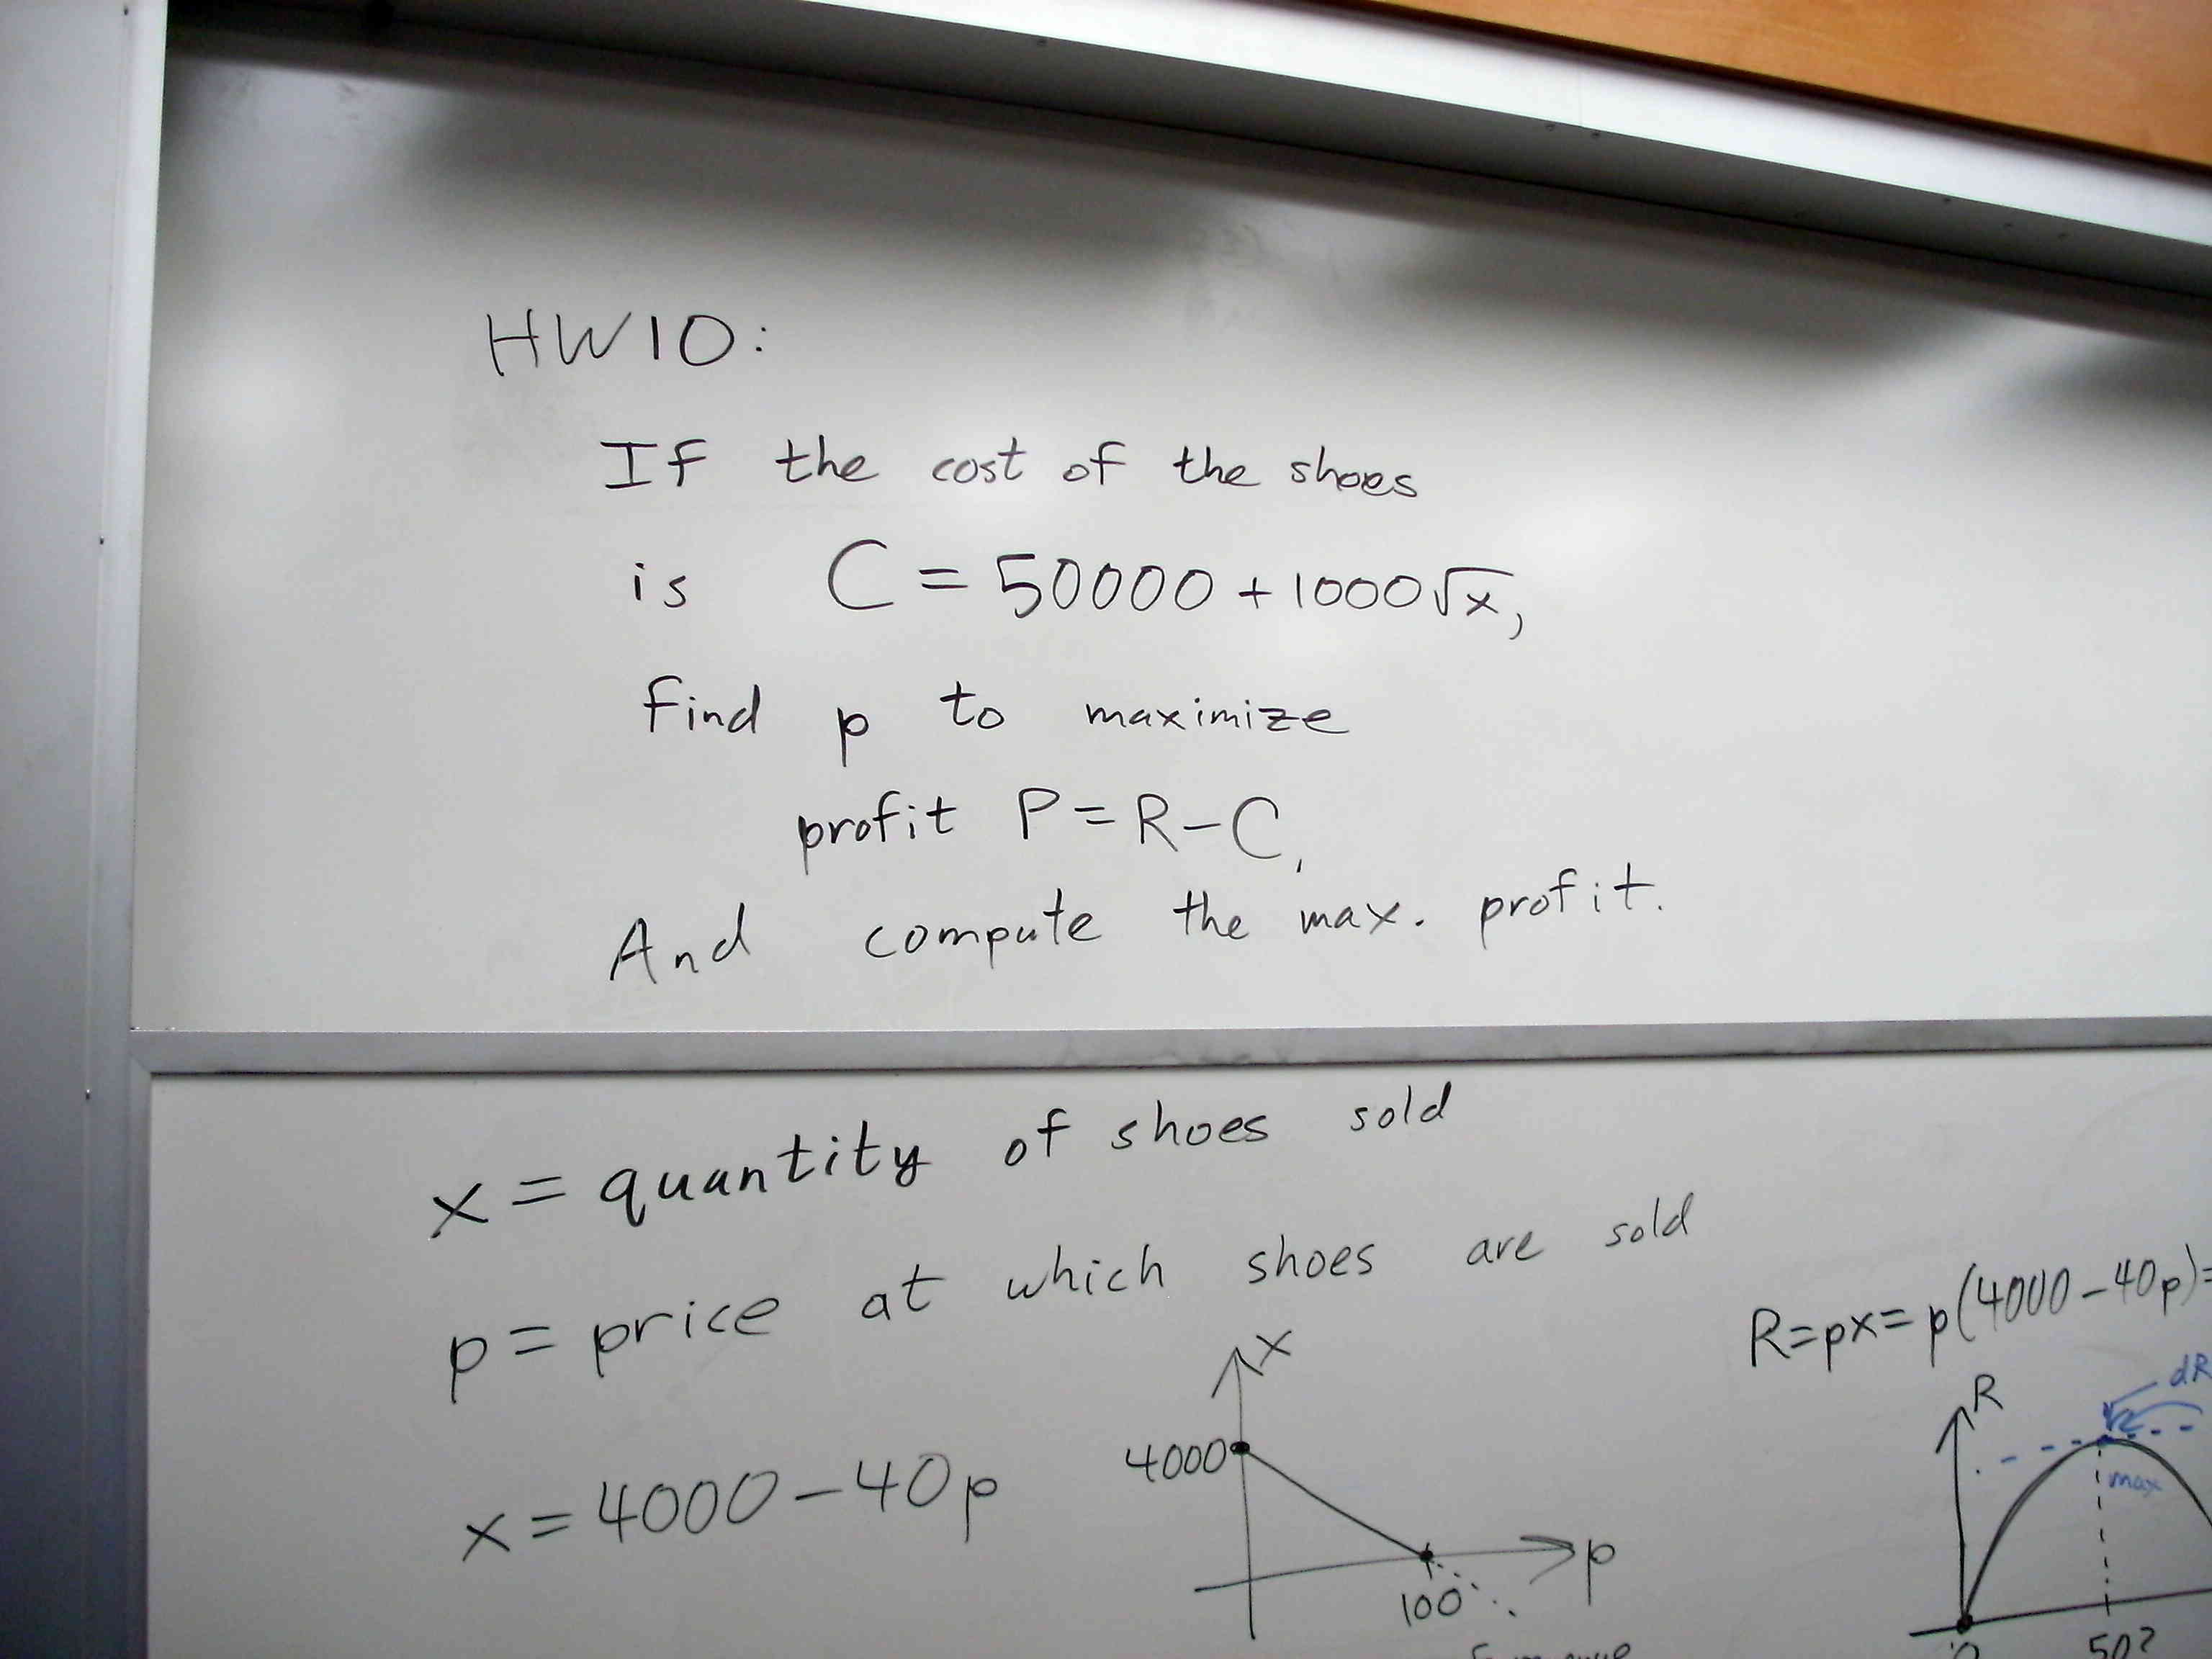 HW10:
If the cost of the shoes
is C = 50000 + 1000√x,
find p to maximize
profit P = R - C,
And compute the max. profit.
x = quantity of shoes sold
p = price at which shoes are sold
x = 4000 - 40p
x
4000
100
p
R = px = p(4000 - 40p) =
dR
R
max
0
50?